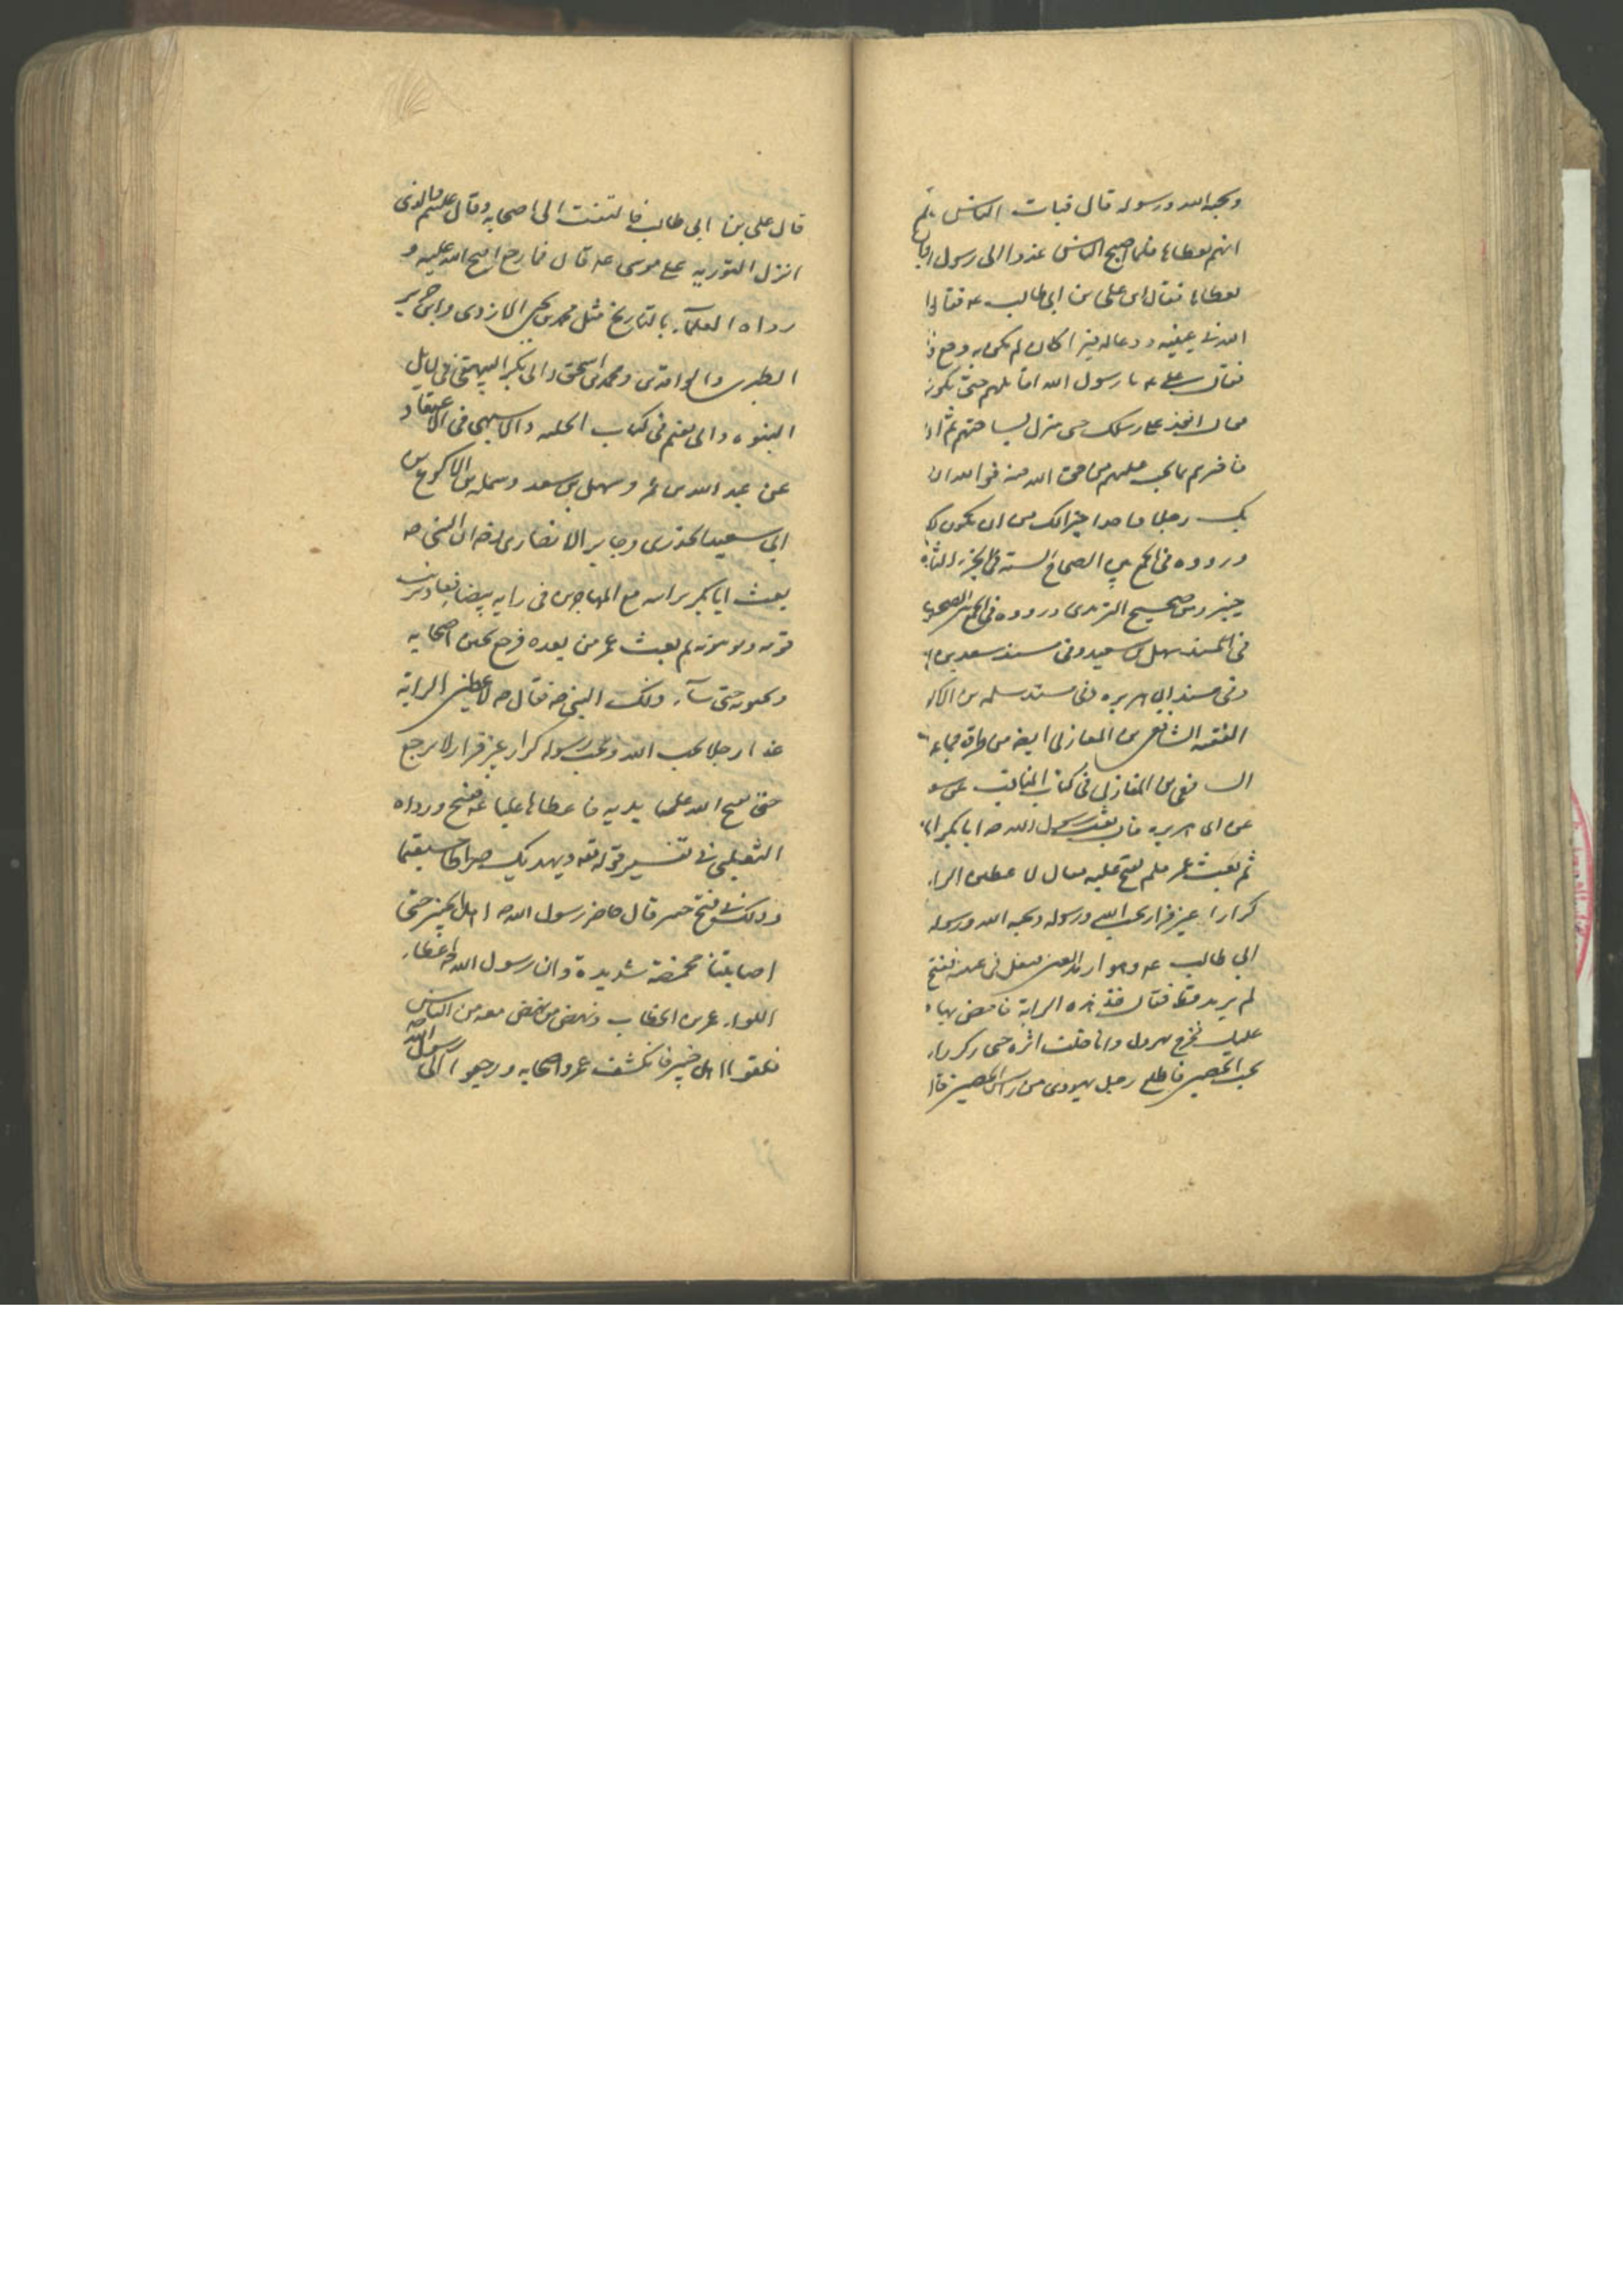 ويحبه الله ورسوله قال فبات الناس
ايهم يعطاها فلما اصبح الناس غدوا الى رسول
يعطاها فقال اين على بن ابى طالب عه فقالوا
الله فى عينيه ودعا له فبرا كان لم يكن به وجع
فقال على عه يا رسول الله اقاتلهم حتى يكونو
فقال انفذ على رسلك حتى تنزل بساحتهم ثم
فاخبرهم بما يجب عليهم من حق الله فيه فوالله
بك رجلا واحدا خير لك من ان يكون لك
ورووه فى الجمع بين الصحاح السته فى الجزء
خيبر ومن صحيح الترمذى ورووه فى الجمع
فى المسند سهل بن سعيد وفى مسند سعد بن
وفى مسند ابى هريره وفى مسند سلمه بن الاكو
الفقيه الشافعى بن المغازلى ايضا من طرق جماعه
فعى بن المغازلى فى كتاب المناقب عن
عن ابى هريره قال بعث رسول الله صه ابا بكر
ثم بعث عمر فلم يفتح عليه فقال لاعطين الرا
كرارا غير فرار يحب الله ورسوله ويحبه الله ورسوله
ابى طالب عه وهو ارمد العين فتفل فى عينه ففتح
فقال خذ هذه الراية فامض بها
عليك فخرج يهرول وانا خلف اثره حتى ركز را
تحت الحصن فاطلع رجل يهودى من راس الحصن
قال على بن ابى طالب فالتفت الى اصحابه وقال غلبتم والذى
انزل التوريه على موسى عه قال فما رجع حتى فتح الله عليه و
رواه العلماء بالتاريخ مثل محمد بن يحيى الازدى وابن جرير
الطبرى والواقدى ومحمد بن اسحق وابى بكر البيهقى فى دلايل
النبوه وابى نعيم فى كتاب الحليه والاشنهى فى الاعتقاد
عن عبد الله بن عمر وسهل بن سعد وسلمه بن الاكوع
ابى سعيد الخدرى وجابر الانصارى ان النبى صه
بعث ابا بكر برايته مع المهاجرين فى رايه بيضا فعاد يونب
قومه ويونبونه ثم بعث عمر من بعده فرجع يجبن اصحابه
ويجبونه حتى ساء ذلك النبى صه فقال صه لاعطين الراية
غدا رجلا يحب الله ويحب رسوله كرار غير فرار لا يرجع
حتى يفتح الله على يديه فاعطاها عليا عه ففتح ورواه
الثعلبى فى تفسير قوله تعه ويهديك صراطا مستقيما
وذلك فى فتح خيبر قال حاصر رسول الله صه اهل خيبر حتى
اصابتنا مخمصة شديدة وان رسول الله صه اعطا
اللواء عمر بن الخطاب ونهض من نهض معه من الناس
فلقوا اهل خيبر فانكشف عمر واصحابه ورجعوا الى رسول الله صه